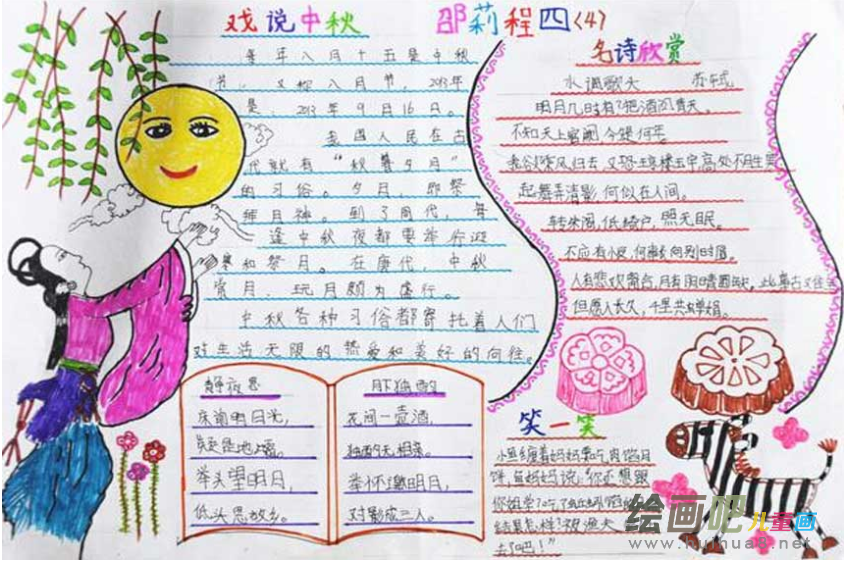 戏说中秋
邵莉程四(4)
每年八月十五是中秋
节，又称八月节，2013年
是，2013年9月16日。
我国人民在古
代就有“秋暮夕月”
的习俗。夕月，即祭
拜月神。到了周代，每
逢中秋夜都要举行迎
寒和祭月。在唐代，中秋
赏月、玩月颇为盛行。
中秋各种习俗都寄托着人们
对生活无限的热爱和美好的向往。
静夜思
床前明月光，
疑是地上霜。
举头望明月，
低头思故乡。
月下独酌
花间一壶酒，
独酌无相亲。
举杯邀明月，
对影成三人。
名诗欣赏
水调歌头 苏轼
明月几时有？把酒问青天。
不知天上宫阙，今夕是何年。
我欲乘风归去，又恐琼楼玉宇，高处不胜寒
起舞弄清影，何似在人间。
转朱阁，低绮户，照无眠。
不应有恨，何事长向别时圆。
人有悲欢离合，月有阴晴圆缺，此事古难全
但愿人长久，千里共婵娟。
笑一笑
小鱼缠着妈妈要吃肉馅月
饼，鱼妈妈说：“你还想跟
你姐学？吃了蚯蚓馅
结果怎样？被渔夫
去了吧！”
绘画吧儿童画
www.huihua8.net